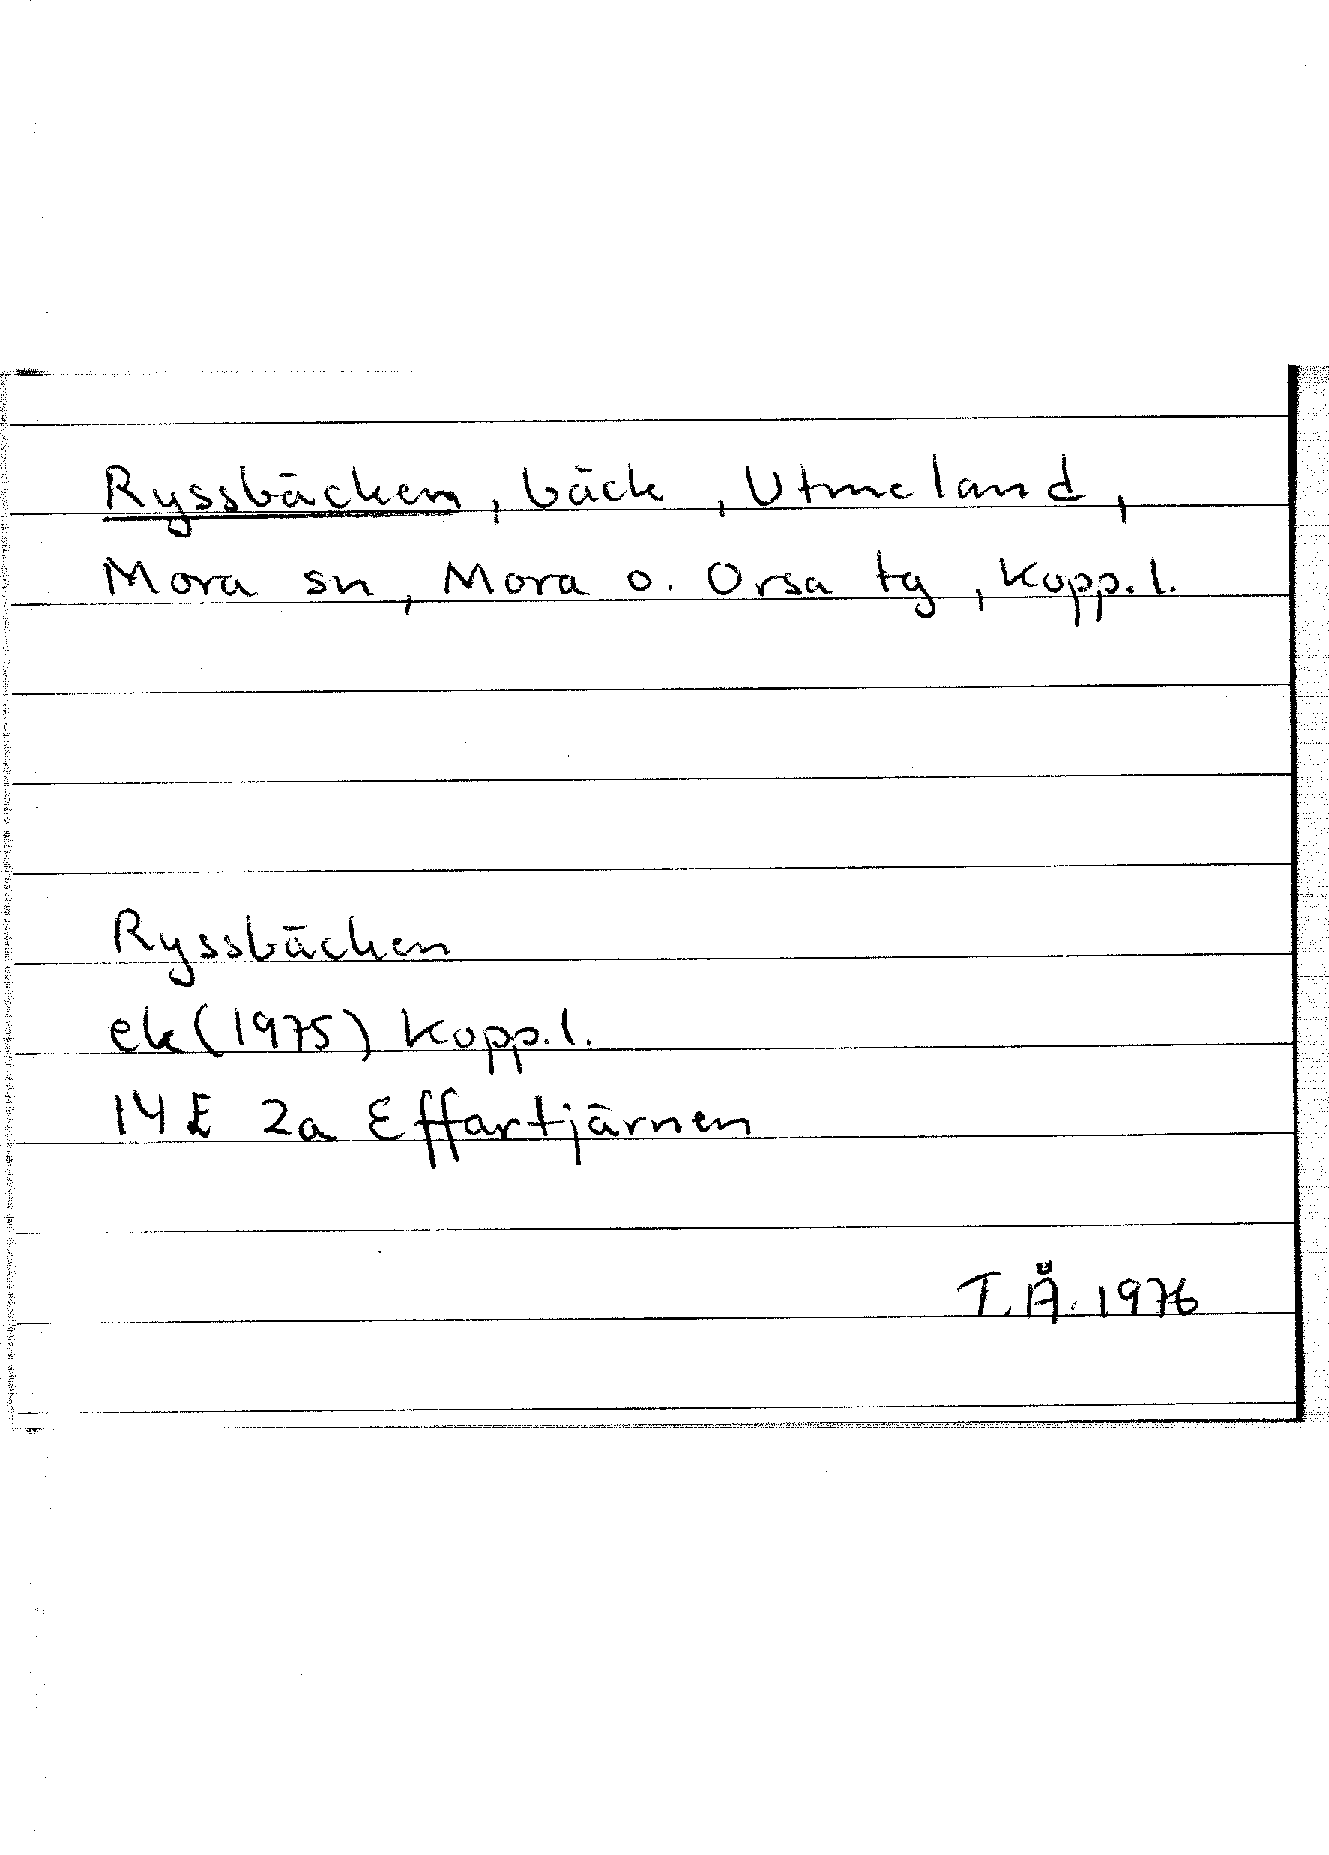 Ryssbäcken, bäck, Utmeland,
Mora sn, Mora o. Orsa tg, Kopp.l.
Ryssbäcken
ek(1975) Kopp.l.
14E 2a Effartjärnen
T.Å. 1976